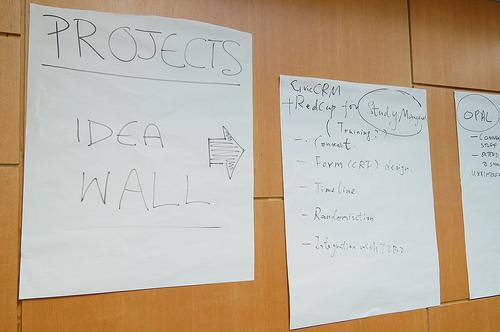 PROJECTS
IDEA
WALL
CiviCRM
+ RedCap for Study Manag
(Training?)
- Consent
- Form (CRF) design.
- Timeline
- Randomisation
- Integration with I2B2
OPAL